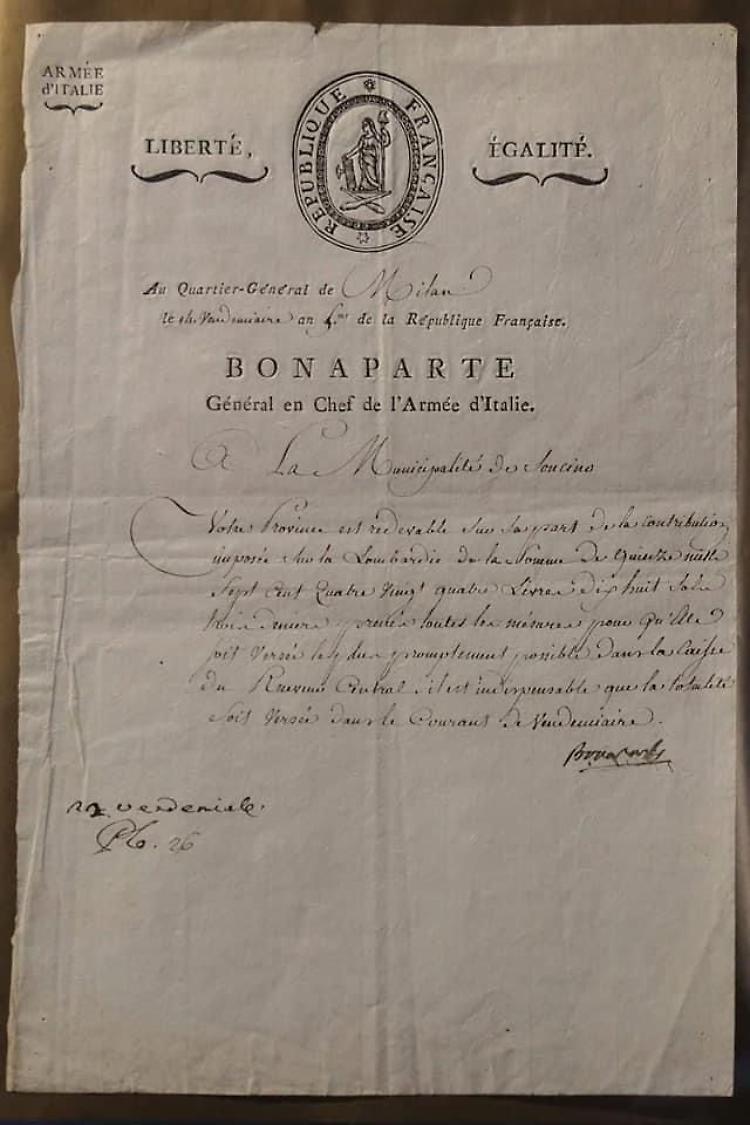 ARMÉE
d'ITALIE
LIBERTÉ,
RÉPUBLIQUE FRANÇAISE
ÉGALITÉ.
Au Quartier-Général de Milan
le Vendemiaire an de la République Française.
BONAPARTE
Général en Chef de l'Armée d'Italie.
A La Municipalité de Soncino
Votre Province est redevable sur sa part de la Contribution
imposée sur la Lombardie de la Somme de Quinze mille
Sept Cent Quatre Vingt quatre Livres dix huit Sols
trois deniers prenés toutes les mésures pour qu'Elle
soit Versée le plus promptement possible dans la Caisse
du Receveur Central, il est indispensable que la totalité
soit Versée dans le Courant de Vendemiaire.
Bonaparte
26